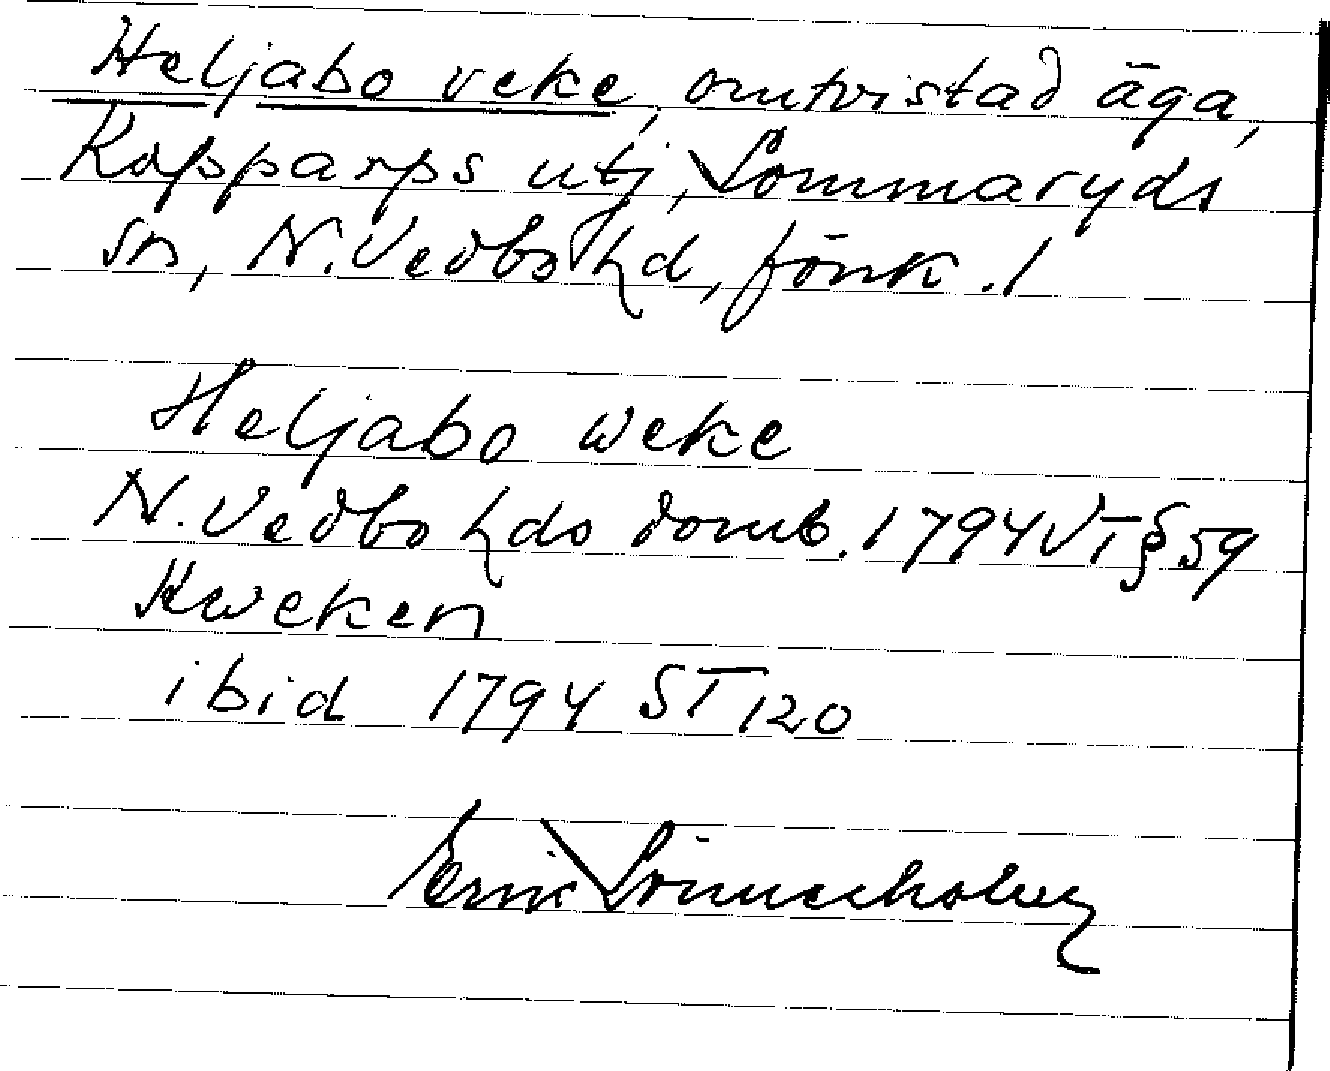 Heljabo veke, omtvistad äga,
Kopparps utj, Lommaryds
sn, N. Vedbo hd, Jönk. l
Heljabo weke
N. Vedbo hds domb. 1794 VT § 59
Kweken
ibid 1794 ST 120
Erik Lönnerholm